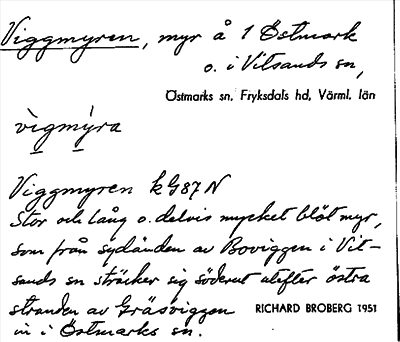 Viggmyren, myr å 1 Östmark
o. i Vitsands sn,
Östmarks sn, Fryksdals hd, Värml. län
vìgmýra
Viggmyren kG87N
Stor och lång o. delvis mycket blöt myr,
som från sydänden av Boviggen i Vit-
sands sn sträcker sig söderut utefter östra
stranden av Gräsviggen
RICHARD BROBERG 1951
in i Östmarks sn.